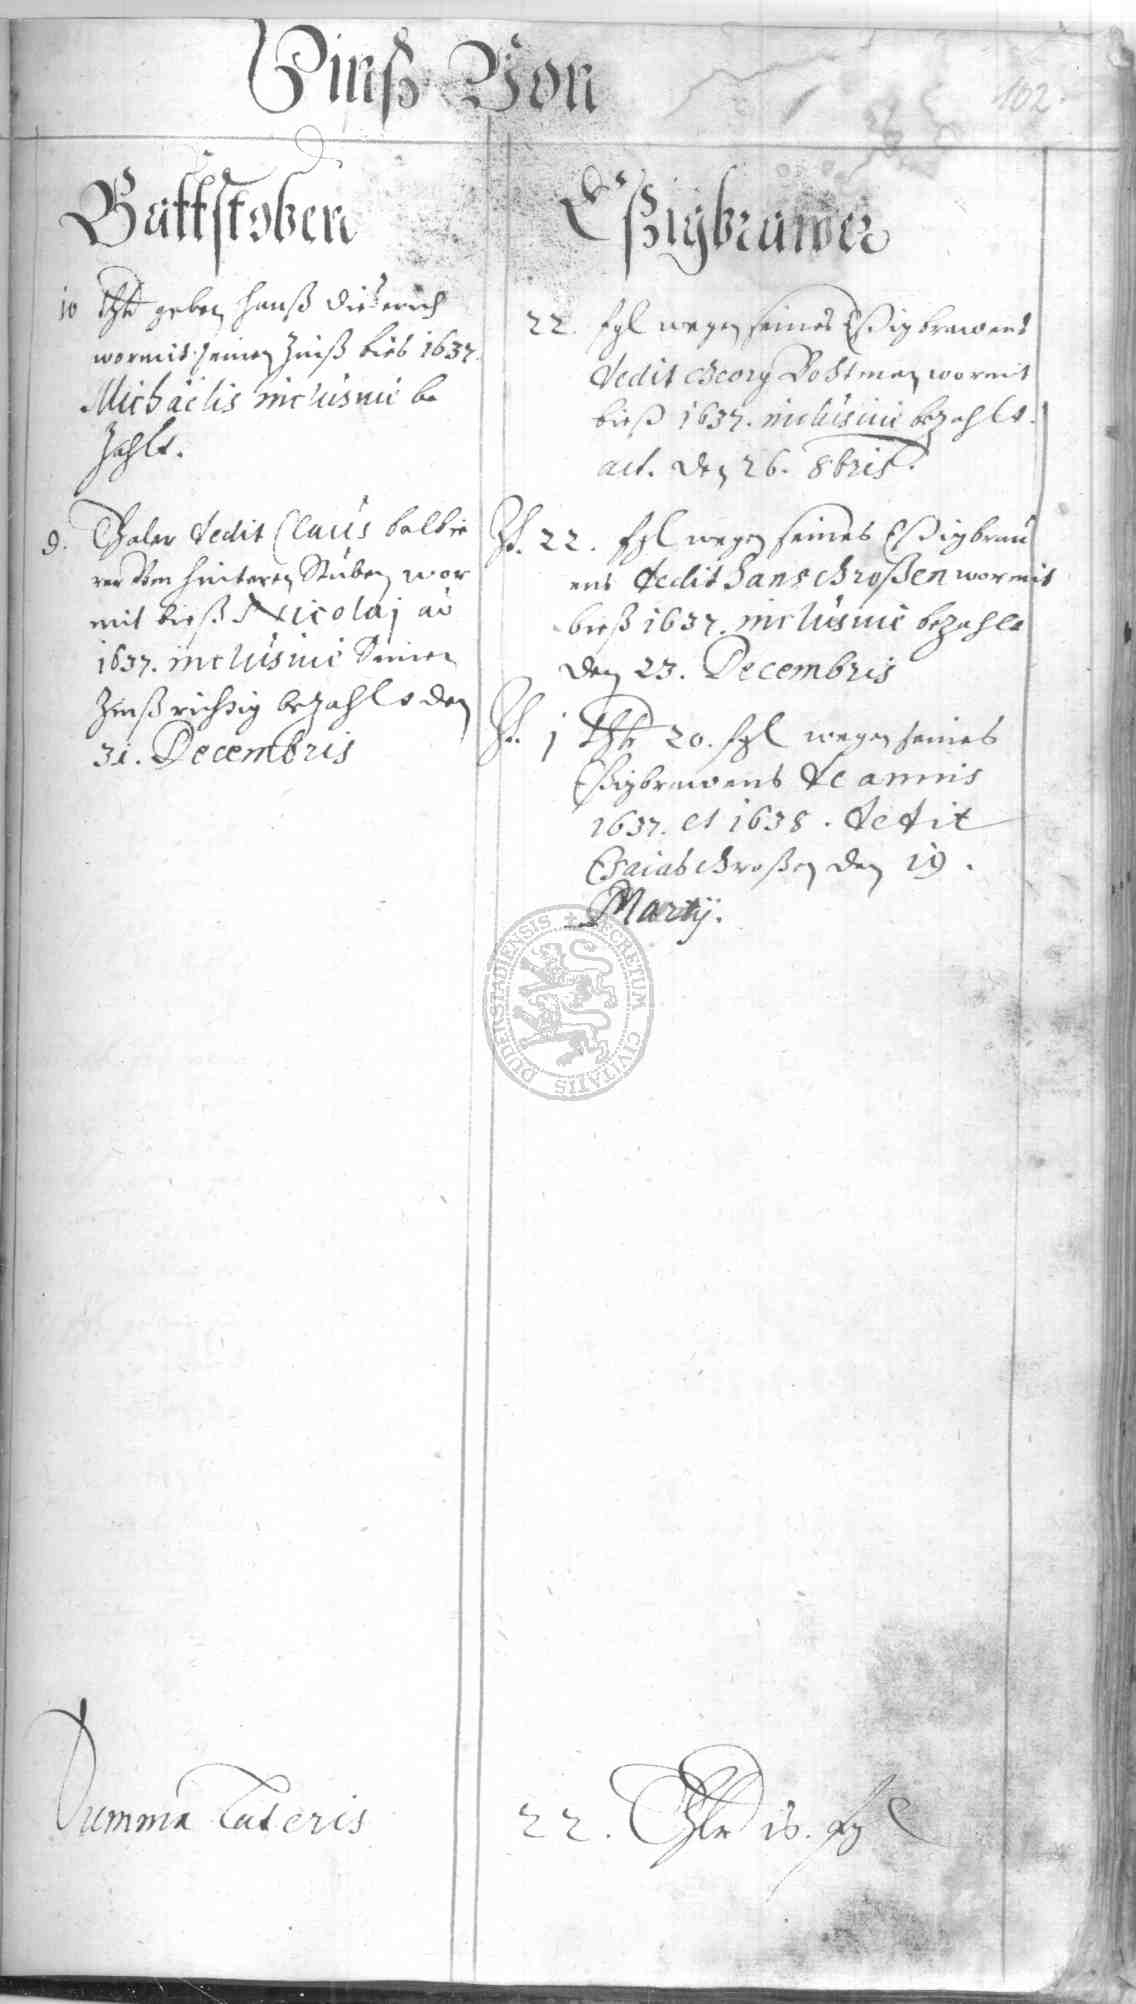 Zinß Von
102
Battstoben
10 Thlr geben Hanß Dieterich
wormit seinen Zinß bieß 1637.
Michaëlis inclusiue be
zahlt.
9. Thaler dedit Claus balbie
rer Vom hinteren Stuben wor
mit bieß Nicolaj aō
1637. inclusiue Seinen
Zinß richtig bezahlt den
31. Decembris
Eßigbrawer
22. sgl wegen seines Eßigbrawens
dedit Georg wormit
bieß 1637. inclusiue bezahlt.
act. den 26. 8bris.
It. 22. sgl wegen seines Eßigbrau
ens dedit Hans Großen wormit
bieß 1637. inclusiue bezahlt
den 23. Decembris
It. 1 Thlr 20. sgl wegen seines
Eßigbrawens de annis
1637. et 1638. dedit
Esaias Großen den 19.
Martij.
SECRETUM CIVITATIS DUDERSTADIENSIS
Summa Lateris 22. Thlr 18. sgl